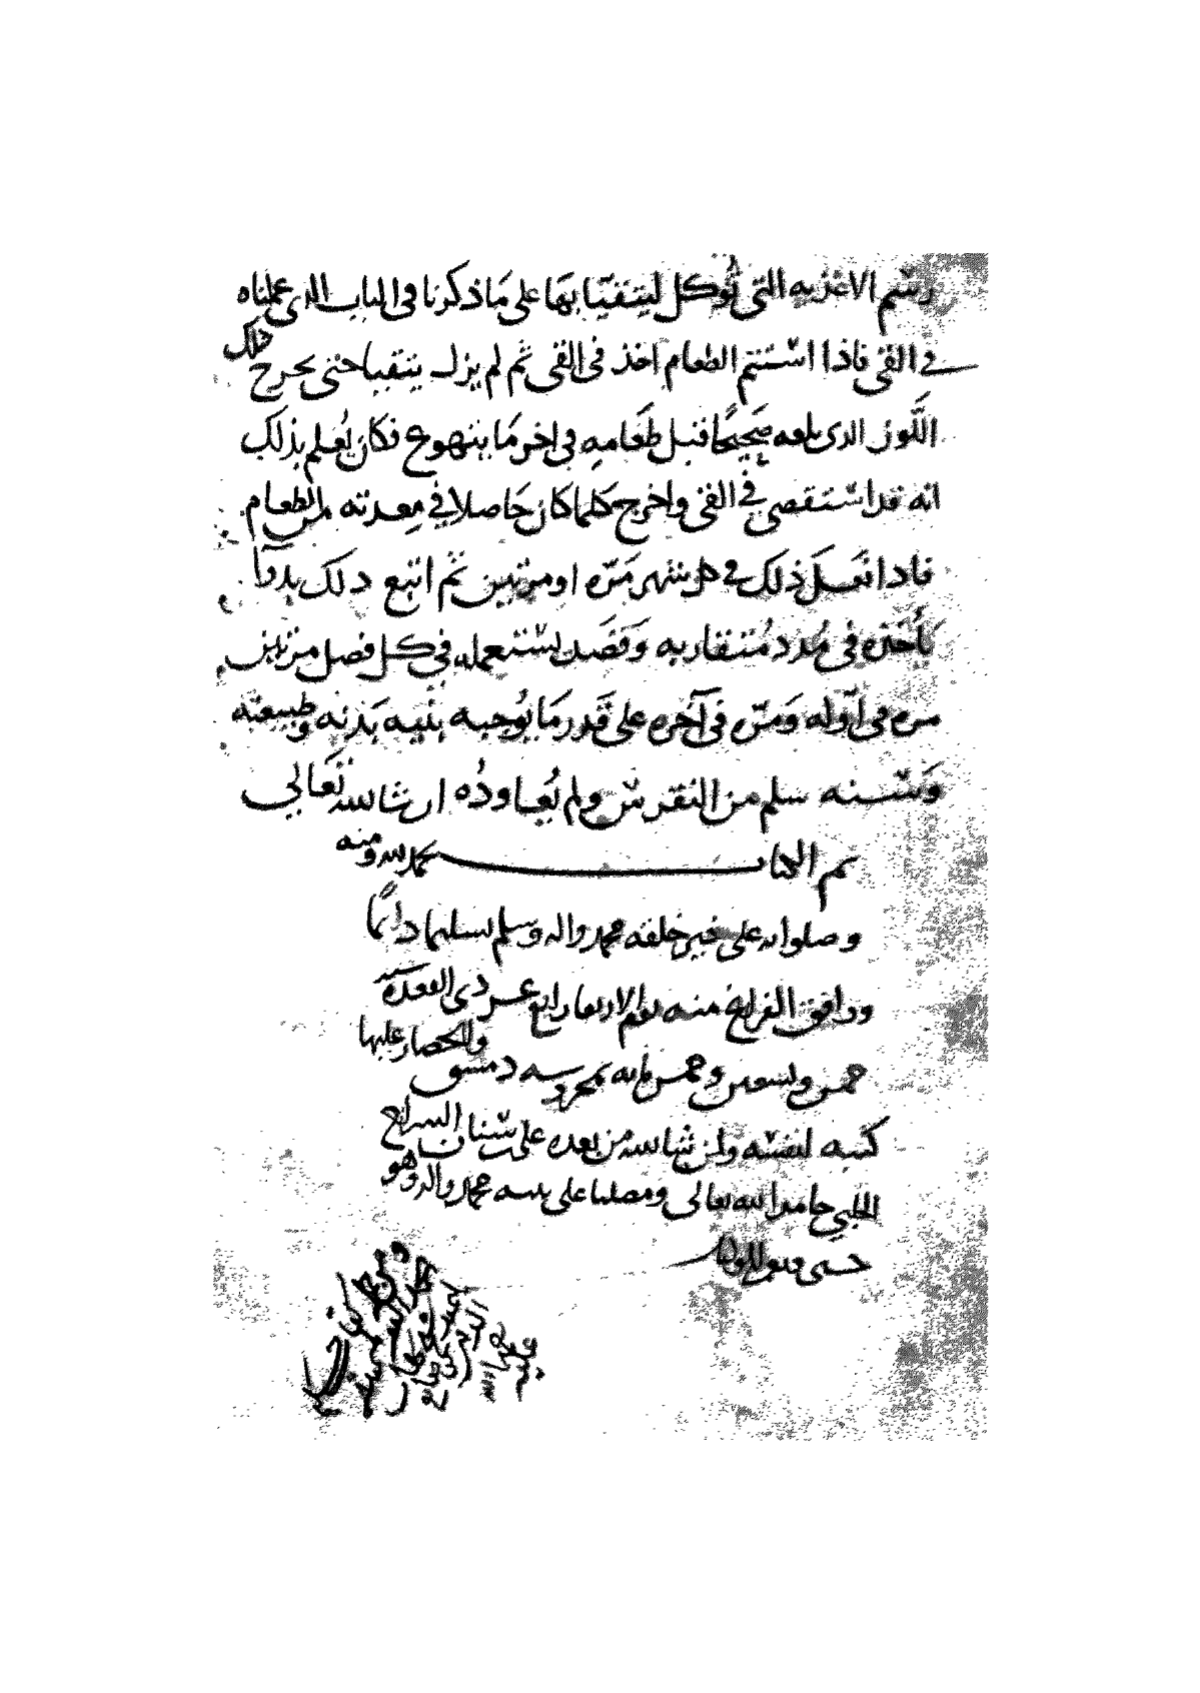 رسم الاغذيه التى تُؤكل ليتقيّا بهَا على مَا ذكرنا فى الباب الذى عملناه
فى القى فاذا اسْتتم الطعام اخذ فى القى ثم لم يزل يتقيا حتى يخرج ذلك
اللَّوز الذى بلعه صَحِيحًا قبل طَعَامِهِ فى اخر مَا يتهوع فكان يُعلم بذلك
انه قد استقصى فى القى واخرج كلما كان حَاصلا فى مِعدته من الطعام
فاذا فَعَلَ ذلك فى كل شهر مَرّه او مرتين ثم اتبع ذلك بدوآ
يأخذه فى مُدد مُتقاربه وَفَصْد يسْتعمله فى كل فصل مرتين
مره فى أوله وَمرّه فى آخره على قَدر مَا يُوجبه بنيه بَدَنه وطبيعته
وَسّنه سلم من النقرس ولم يُعاودُه ان شا الله تَعَالي
تم الكتاب بحمد الله ومنه
وصلواته على خير خلقه محمد واله وسلم تسليما دائمًا
ووافق الفراغ منه يوم الاربعا رابع عشر ذى القعده سنه
خمس وتسعين وخمس مايه بمحروسه دمشق والحصار عليها
كتبه لنفسه ولمن شا الله من بعده على بن سنان السرايع
الحلبي حامدا لله تعالى ومصليا على نبيه محمد واله وهو
حسبى ونعم الوكيل